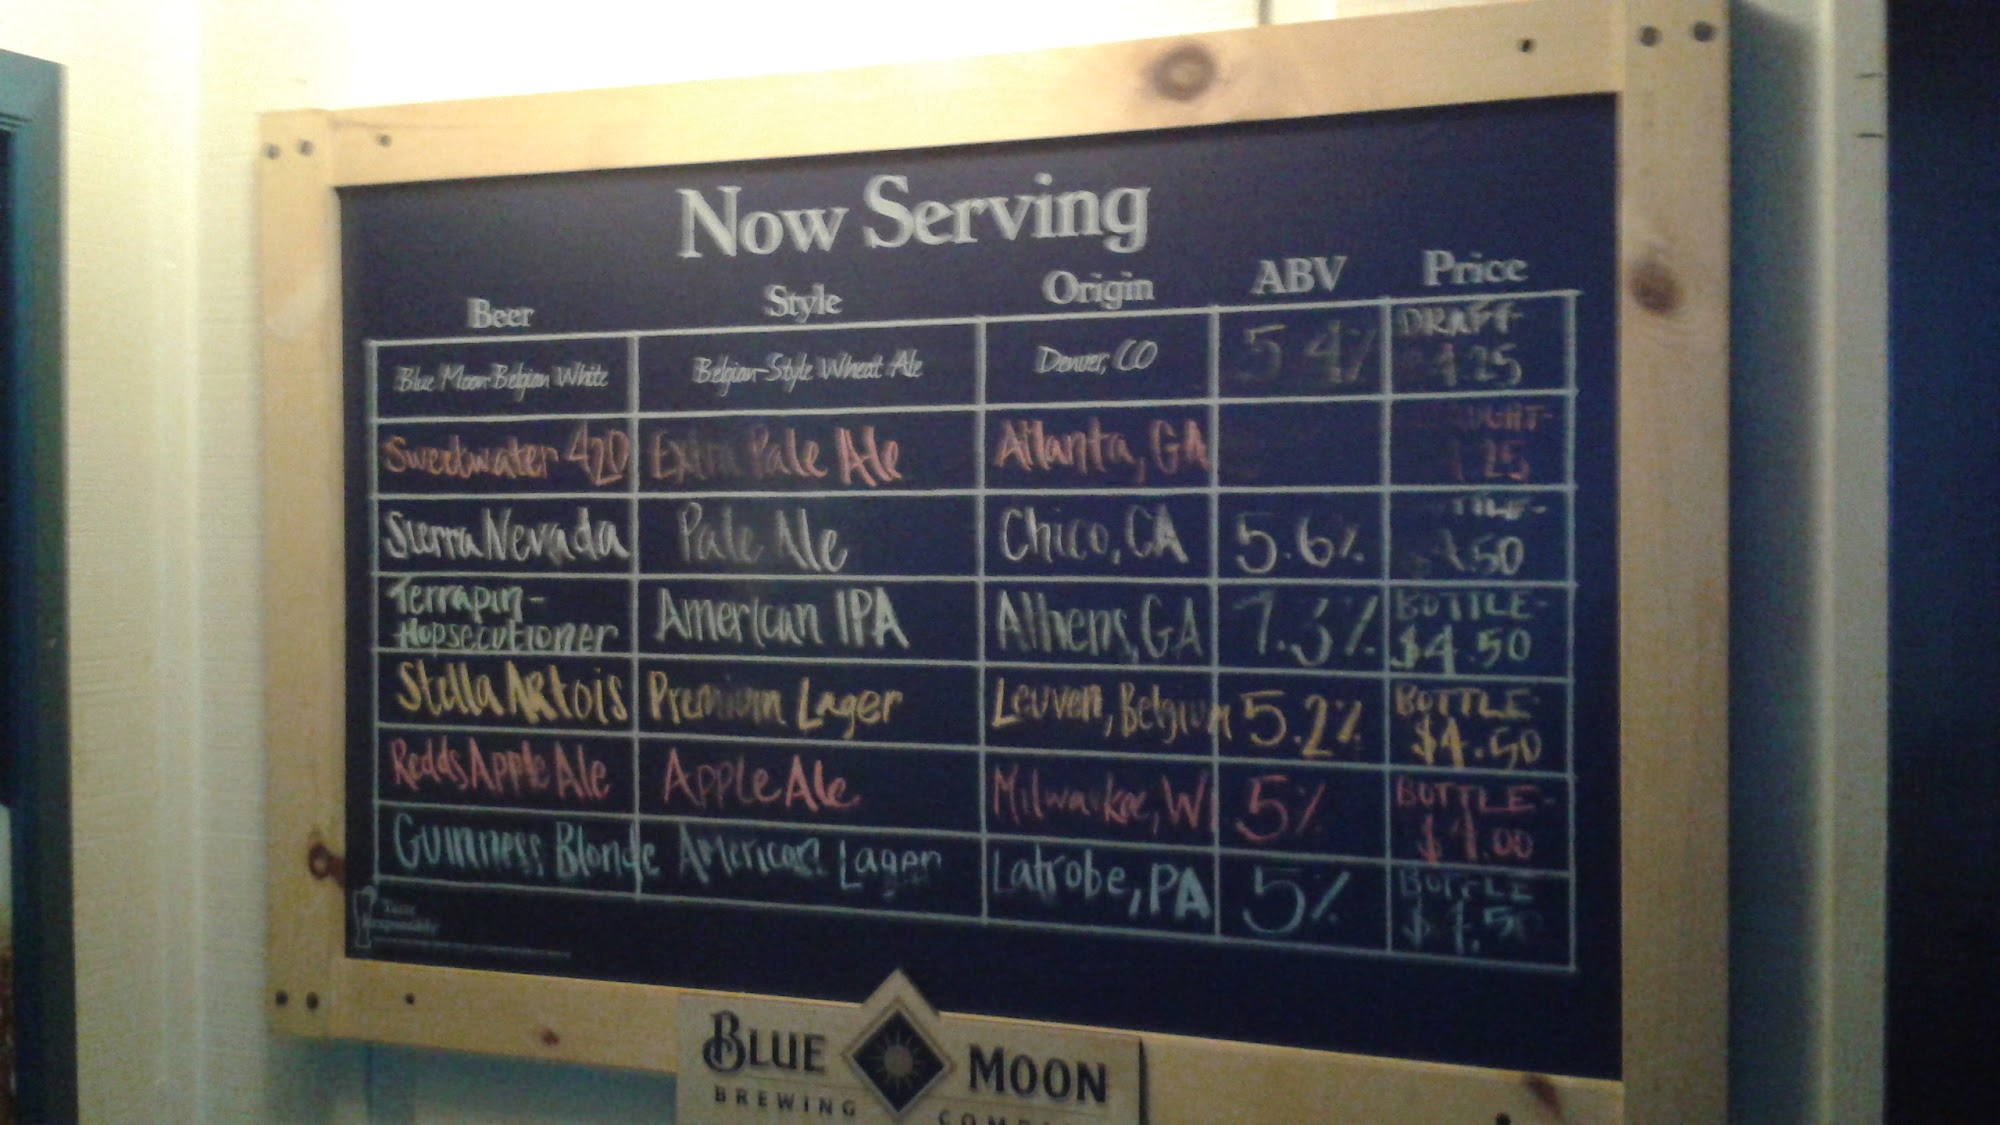 Now Serving
Beer Style Origin ABV Price
Blue Moon Belgian White Belgian-Style Wheat Ale Denver, CO 5.4% DRAFT-
4.25
Sweetwater 420 Extra Pale Ale Atlanta, GA
25
Sierra Nevada Pale Ale Chico, CA 5.6%
4.50
Terrapin- American IPA Athens, GA 7.3% BOTTLE-
Hopsecutioner $4.50
Stella Artois Premium Lager Leuven, Belgium 5.2% BOTTLE-
$4.50
Redds Apple Ale Apple Ale Milwaukee, WI 5% BOTTLE-
$4.00
Guinness Blonde American Lager Latrobe, PA 5% BOTTLE
$4.50
Taste
Responsibly
BLUE MOON
BREWING